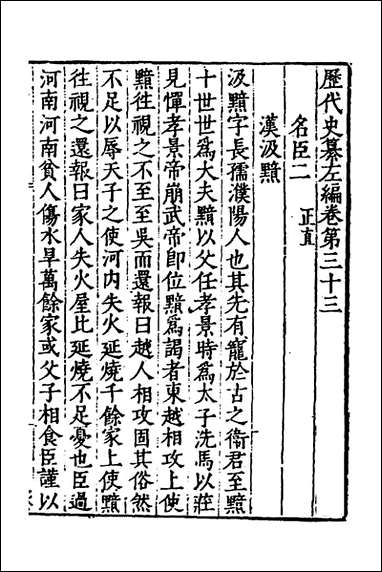 歷代史纂左編卷第三十三
名臣二 正直
漢汲黯
汲黯字長孺濮陽人也其先有寵於古之衞君至黯
十世世爲大夫黯以父任孝景時爲太子洗馬以莊
見憚孝景帝崩武帝卽位黯爲謁者東越相攻上使
黯往視之不至至吳而還報曰越人相攻固其俗然
不足以辱天子之使河内失火延燒千餘家上使黯
徃視之還報曰家人失火屋比延燒不足憂也臣過
河南河南貧人傷水旱萬餘家或父子相食臣謹以